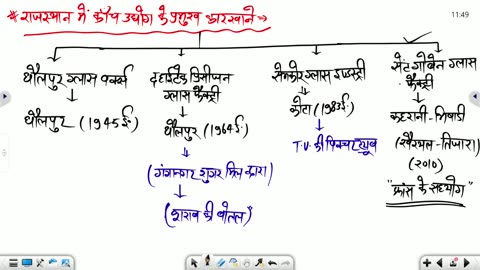 * राजस्थान में काँच उद्योग के प्रमुख कारखाने →
11:49
धौलपुर ग्लास वर्क्स
धौलपुर (1945ई॰)
ग्लास फैक्ट्री
धौलपुर (1964ई॰)
(गंगानगर शुगर मिल द्वारा)
(शराब की बोतल)
सेमकोर ग्लास इण्डस्ट्री
कोटा (1983ई॰)
T.V. की पिक्चर ट्यूब
सेंट गोबेन ग्लास
फैक्ट्री
कहरानी-भिवाडी
(खैरथल-तिजारा)
(2010)
"फ्रांस के सहयोग"